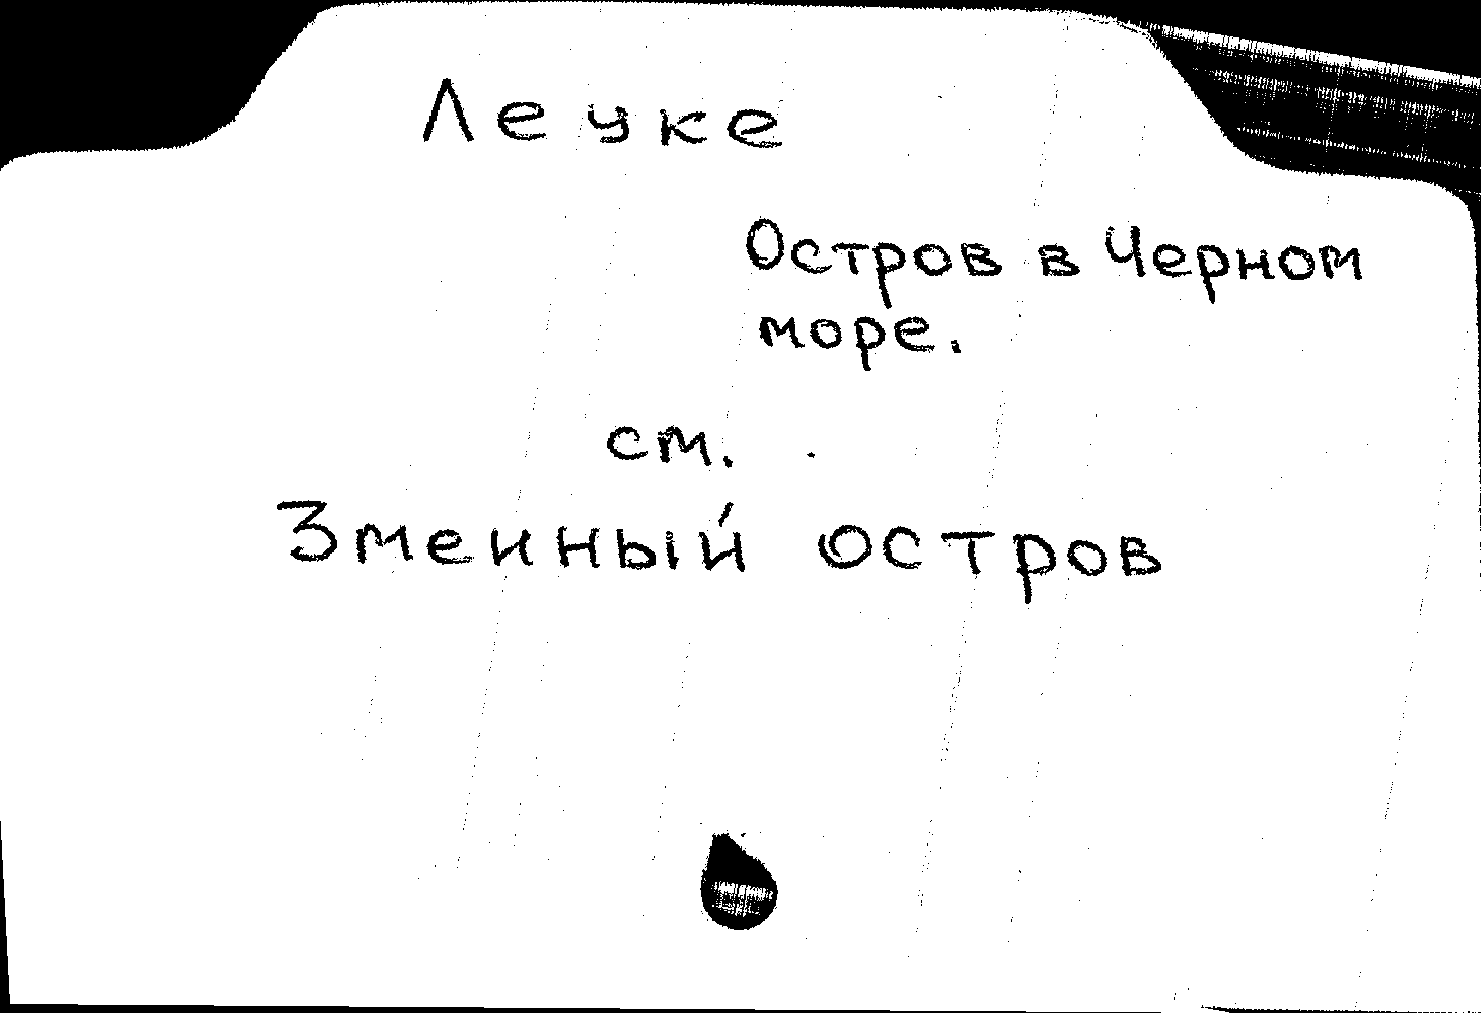 Леуке
Остров в Черном
море.
см.
Змеиный остров